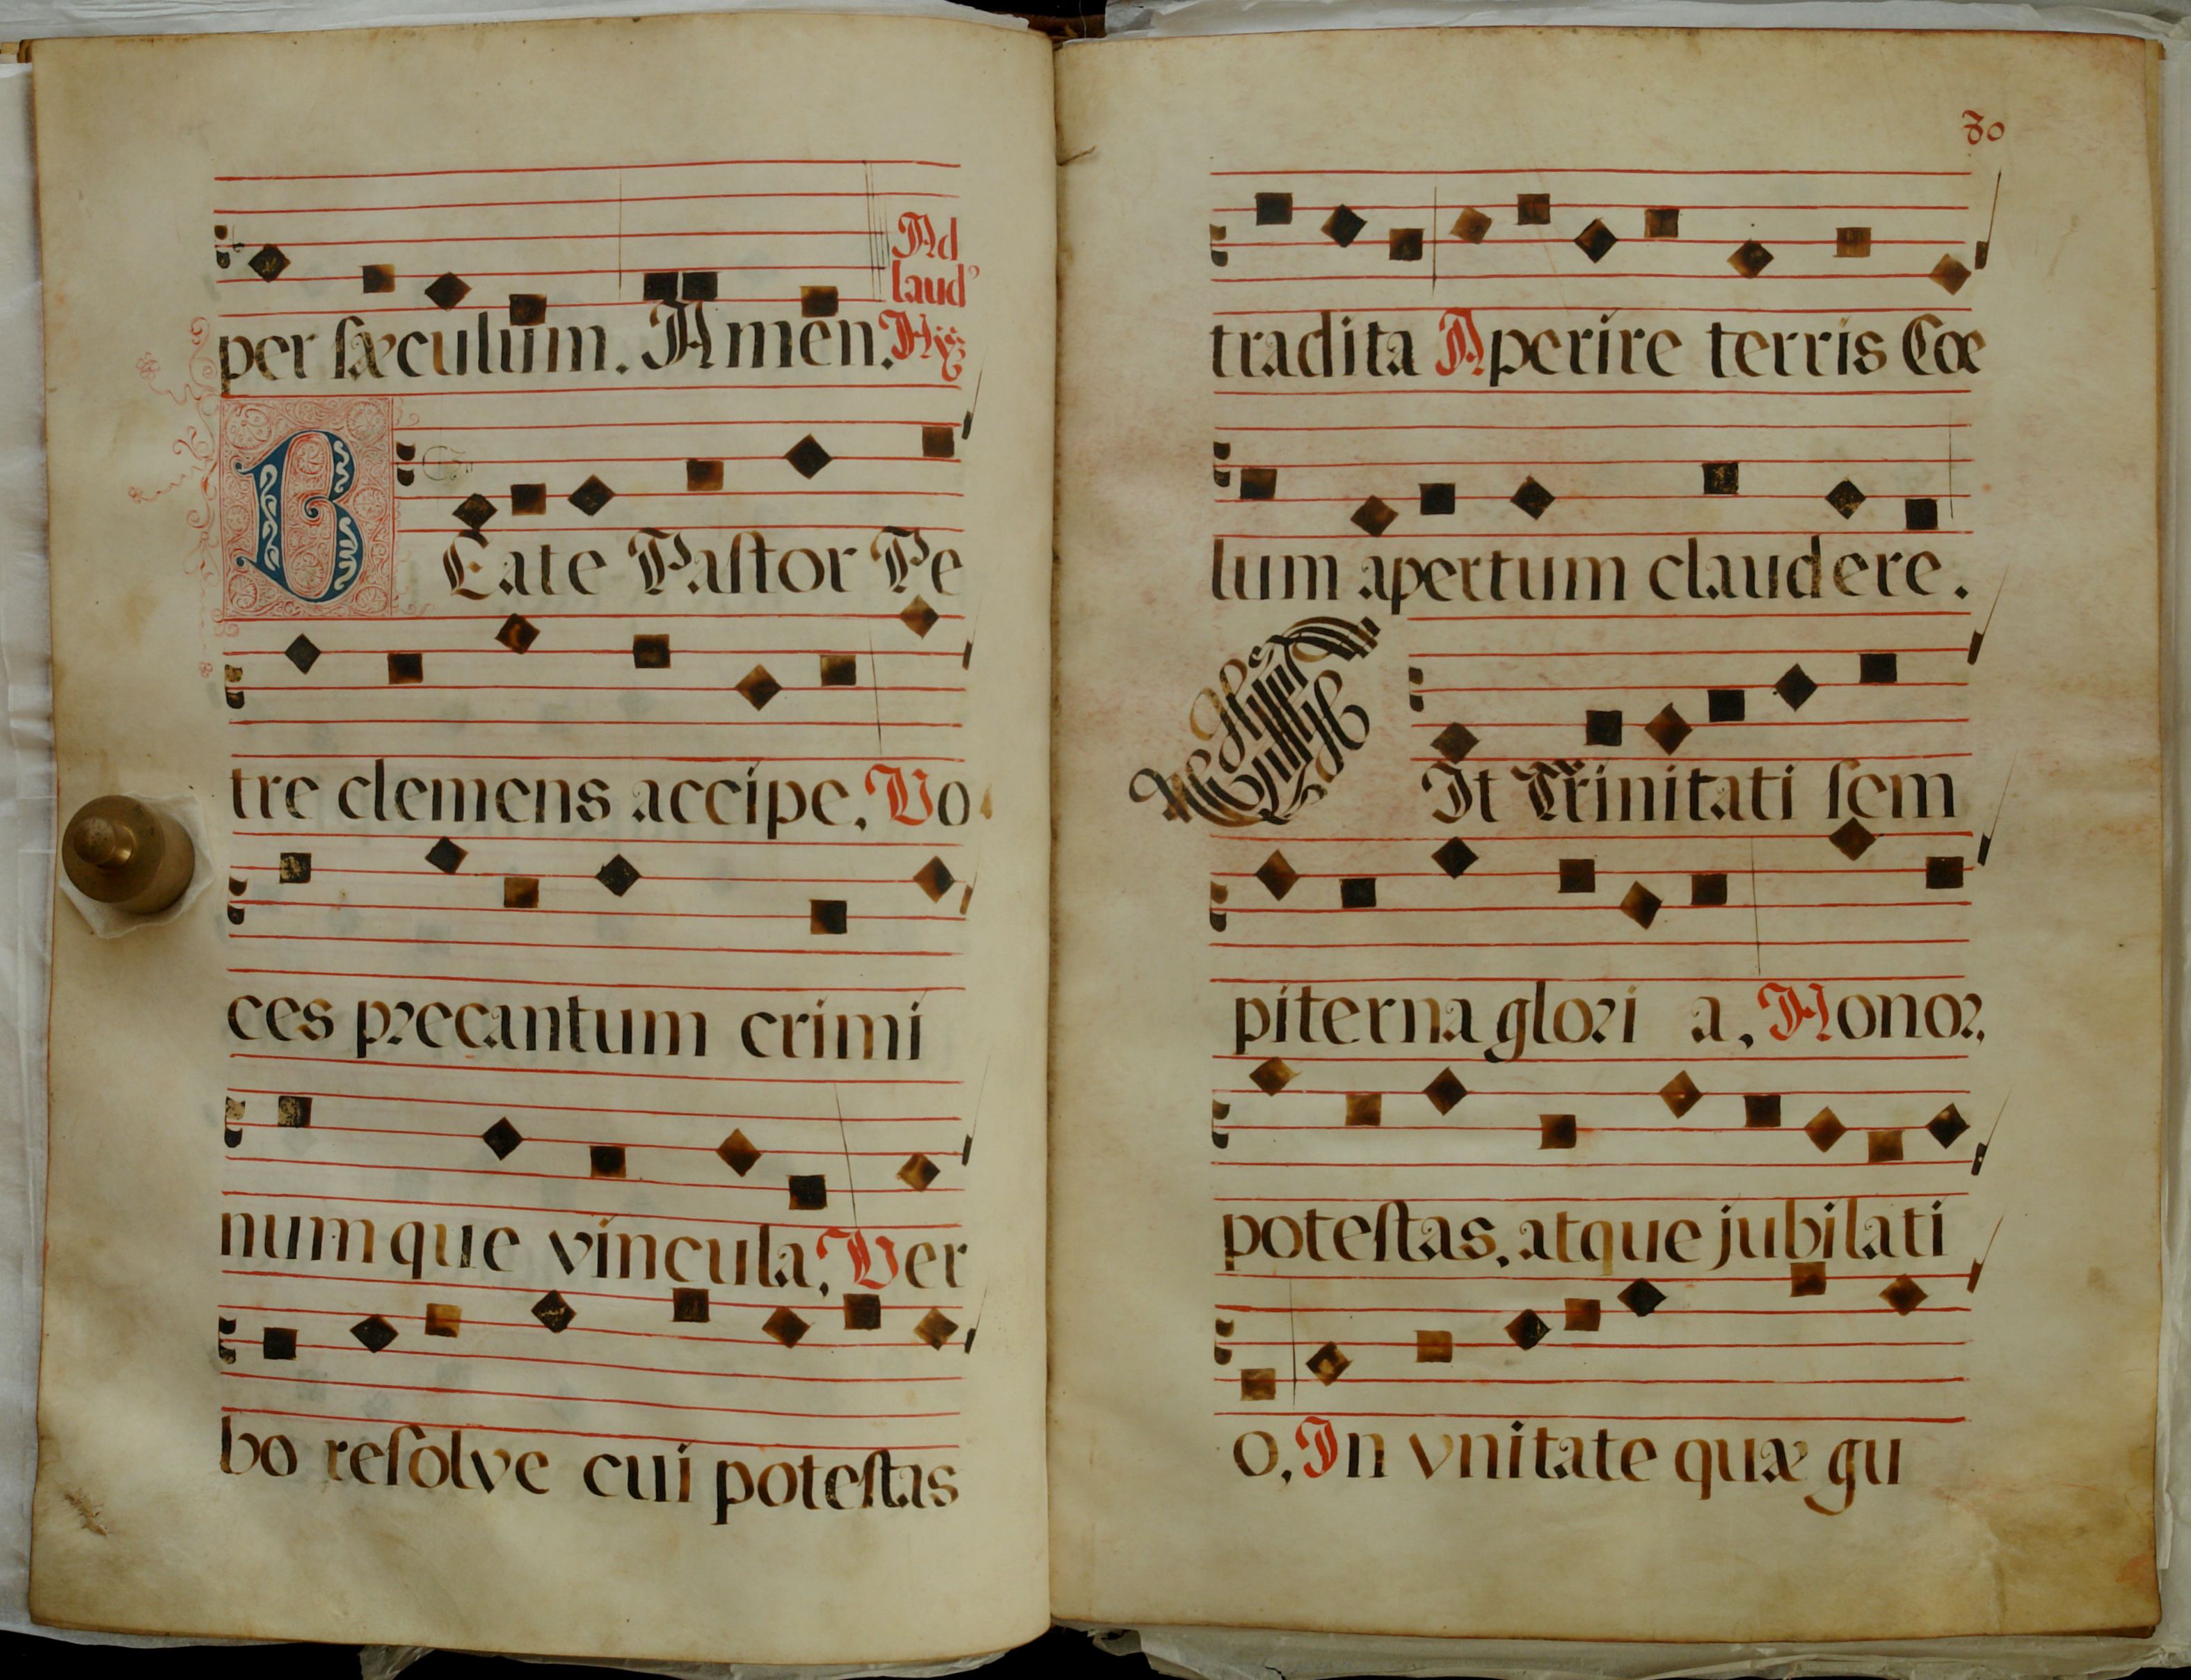 Ad
laud
per sæculum. Amen. Hỹ
BEate Pastor Pe
tre clemens accipe, Vo
ces precantum crimi
numque vincula, Ver
bo resolve cui potestas
30
tradita Aperire terris Cœ
lum apertum claudere.
SIt Trinitati sem
piterna glori a, Honor,
potestas, atque jubilati
o, In vnitate quæ gu